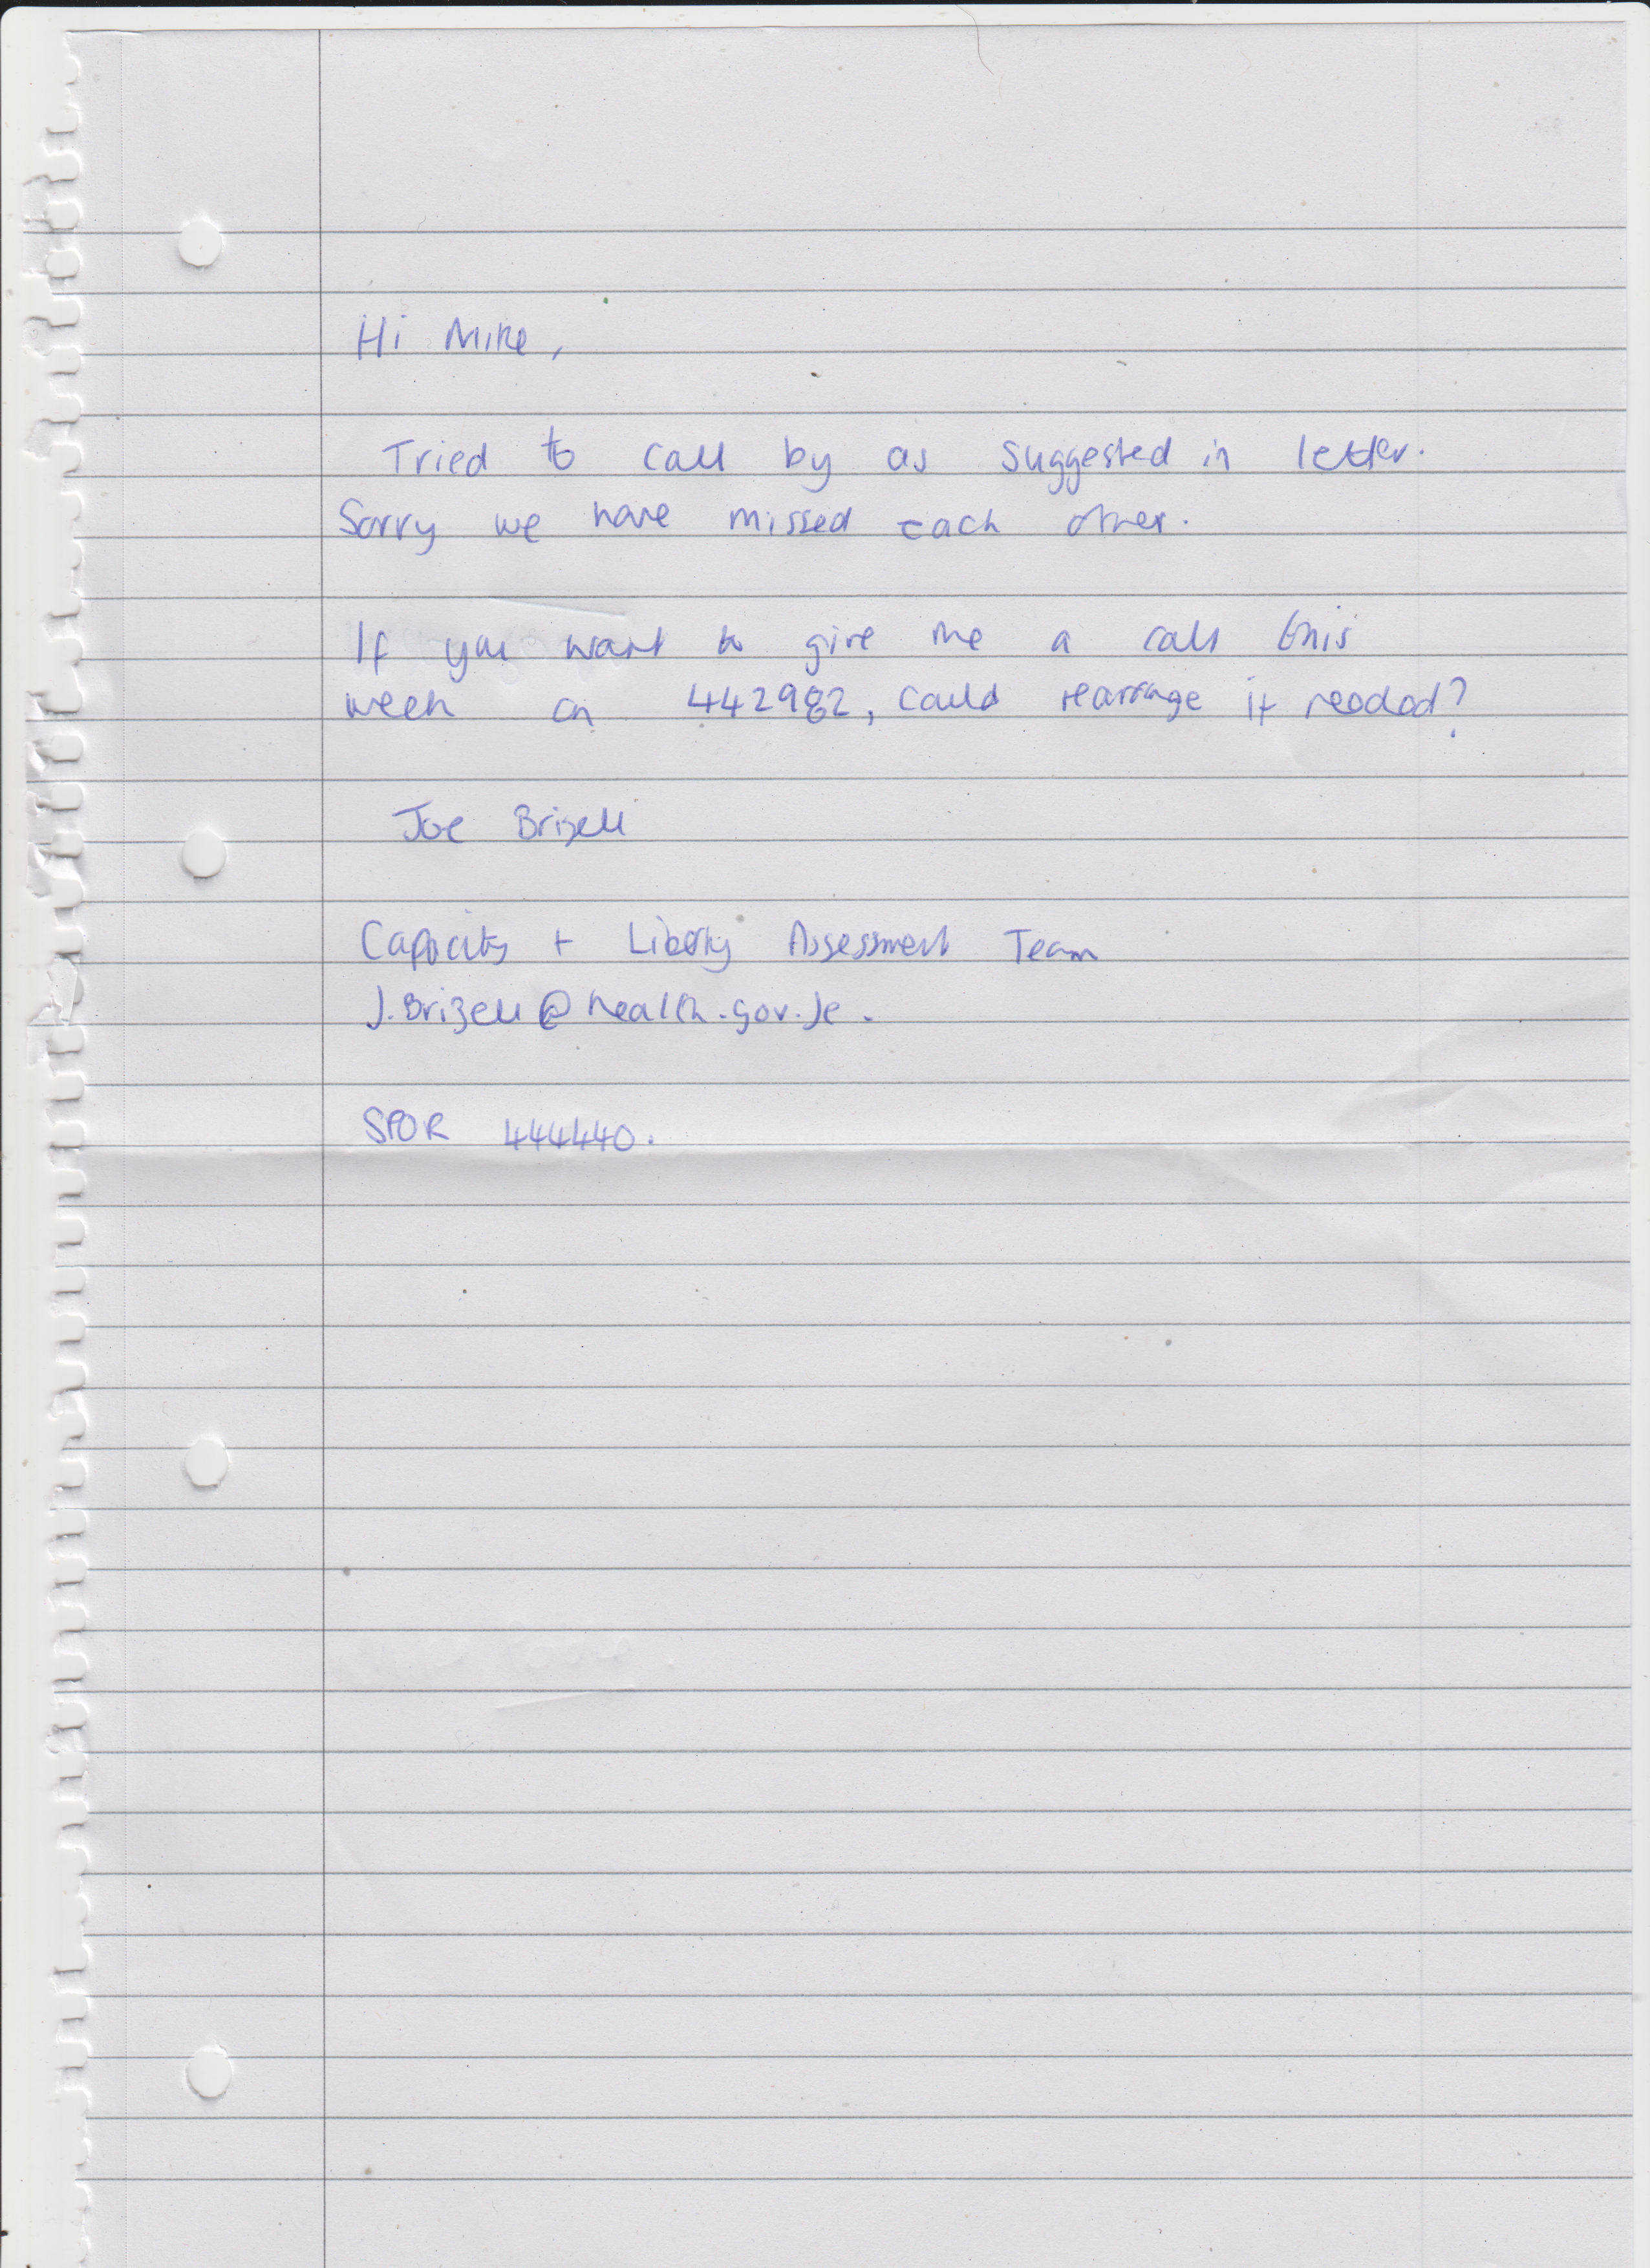 Hi Mike,
Tried to call by as suggested in letter.
Sorry we have missed each other.
If you want to give me a call this
week on 442982, could rearrange if needed?
Joe Brizell
Capacity + Liberty Assessment Team
J.Brizell@health.gov.je.
SPOR 444440.